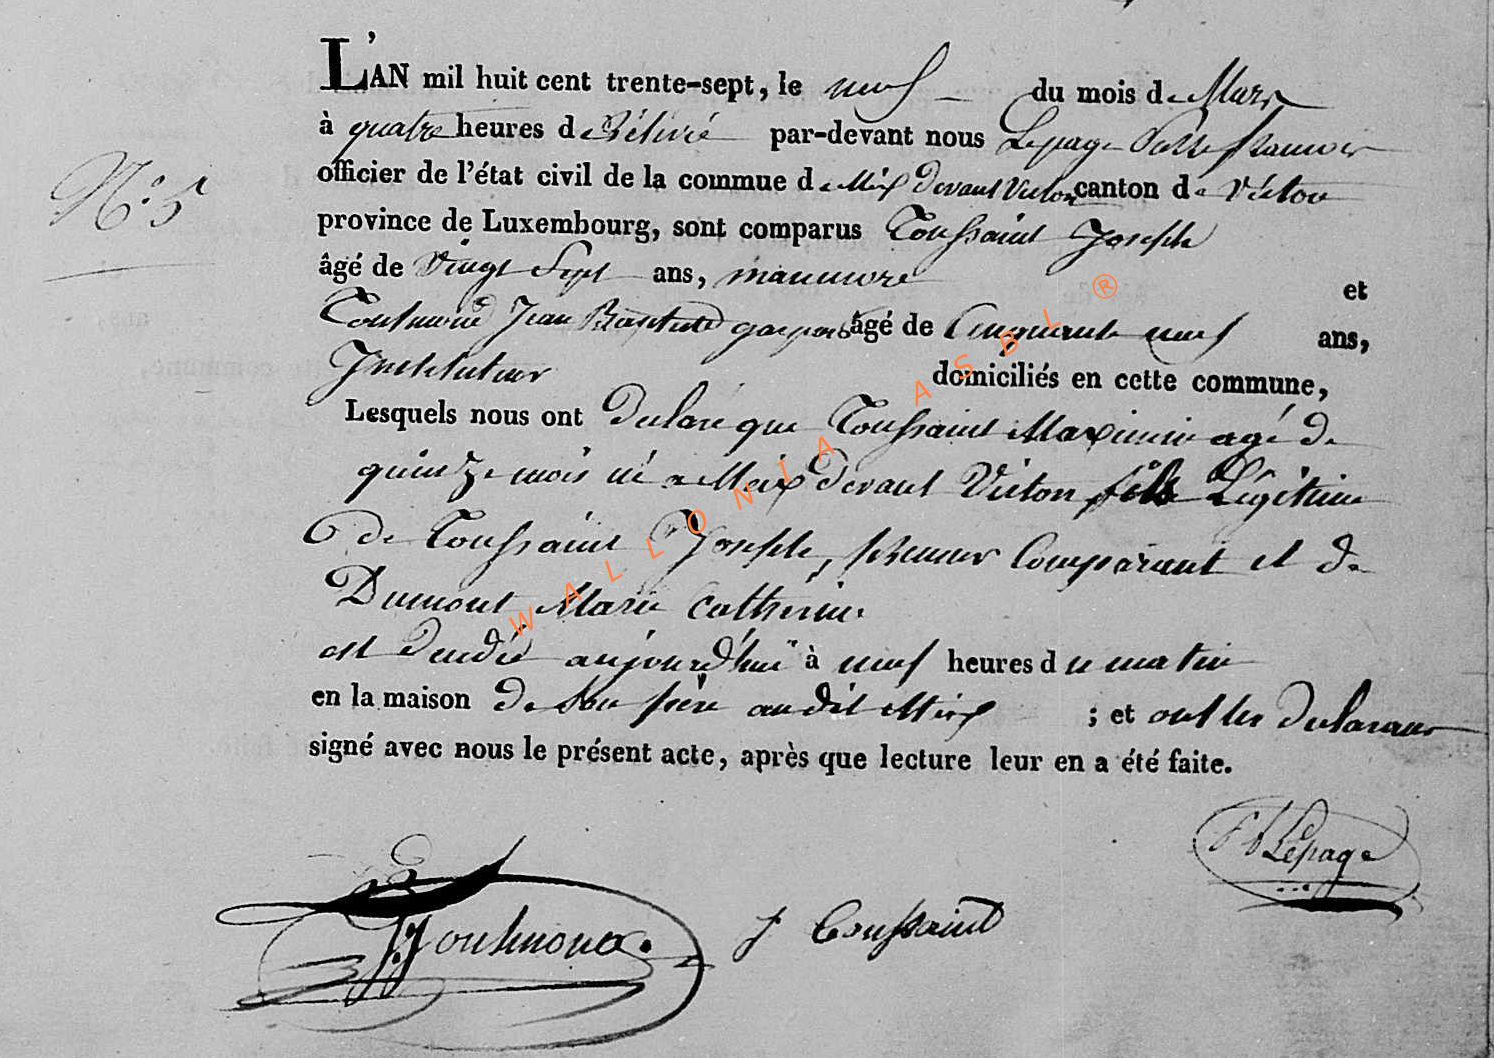 L'AN mil huit cent trente-sept, le neuf du mois de Mars
à quatre heures de rélevé par-devant nous Lepage
officier de l'état civil de la commue de Meix devant Virton canton de Virton
N° 5
province de Luxembourg, sont comparus Toussaint Joseph
âgé de vingt Sept ans, manuvre et
Jean Baptiste âgé de Cinquante neuf ans,
Instituteur domiciliés en cette commune,
Lesquels nous ont declaré que Toussaint Maximin agé de
quinze mois né a Meix devant Virton fils Légitime
de Toussaint Joseph, premier Comparant et de
Dumont Marie Catherine
est decédé aujourd'hui à neuf heures du matin
en la maison de Son père audit Meix ; et ont les declarans
signé avec nous le présent acte, après que lecture leur en a été faite.
Lepage
J Toussaint
WALLONIA ASBL ®